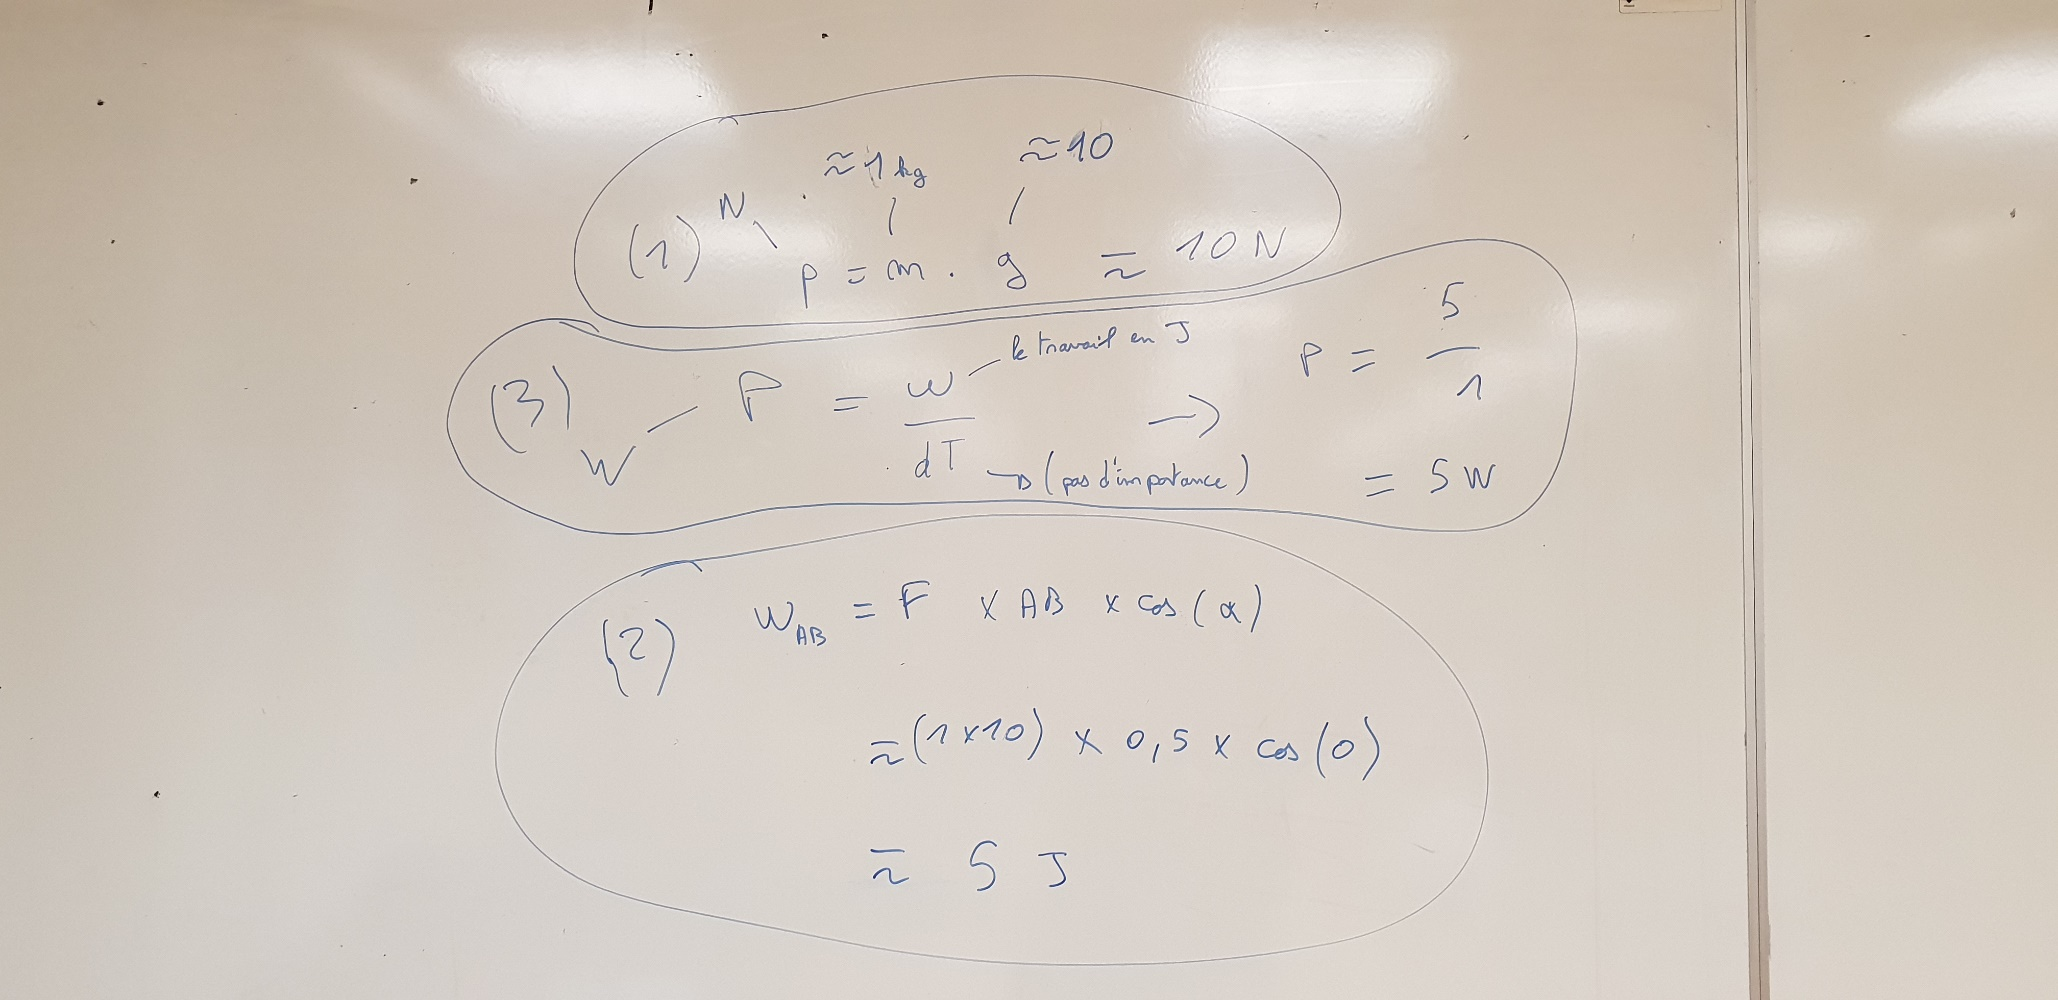 ≈1 kg ≈10
(1) N
p = m . g ≂ 10 N
(3) W P = w le travail en J
dT (pas d'importance)
→ P = 5
1
= 5 W
(2) W AB = F x AB x cos(α)
≂ (1x10) x 0,5 x cos(0)
≂ 5 J